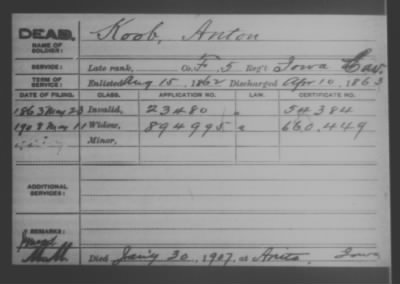 DEAD, Koob, Anton
NAME OF SOLDIER:
SERVICE: Late rank, Co. F. 5 Reg't Iowa Cav.
TERM OF SERVICE: Enlisted Aug 15, 1862 Discharged Apr 10, 1863
DATE OF FILING. CLASS. APPLICATION NO. LAW. CERTIFICATE NO.
1863 May 23 Invalid, 23480 54384
1908 May 11 Widow, 894995 660.449
Minor,
ADDITIONAL SERVICES:
REMARKS:
Died Jan'y 30, 1907, at Anita, Iowa